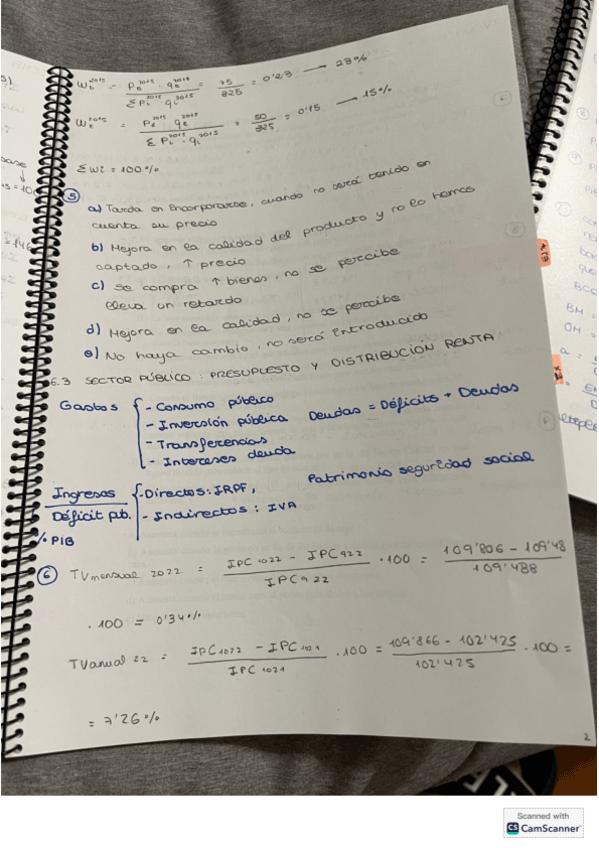 W_b^2015 = P_b^2015 · q_b^2015 / Σ P_i^2015 · q_i^2015 = 75 / 325 = 0'23 → 23%
W_z^2015 = P_z^2015 q_z^2015 / Σ P_i^2015 · q_i^2015 = 50 / 325 = 0'15 → 15%
Σ Wi = 100%
⑤
a) Tarda en incorporarse, cuando no será tenido en
cuenta su precio
b) Mejora en la calidad del producto y no lo hemos
captado, ↑ precio
c) Se compra ↑ bienes, no se percibe
lleva un retardo
d) Mejora en la calidad, no se percibe
e) No haya cambio, no será introducido
6.3 SECTOR PÚBLICO: PRESUPUESTO Y DISTRIBUCIÓN RENTA
Gastos { - Consumo público
- Inversión pública Deudas = Déficits + Deudas
- Transferencias
- Intereses deuda
Ingresos { - Directos: IRPF, Patrimonio seguridad social
Déficit púb. - Indirectos: IVA
% PIB
⑥ TV mensual 2022 = IPC 1022 - IPC 922 / IPC 922 · 100 = 109'806 - 109'48 / 109'488
· 100 = 0'34%
TV anual 22 = IPC 1022 - IPC 1021 / IPC 1021 · 100 = 109'866 - 102'425 / 102'425 · 100 =
= 7'26%
2
Scanned with
CS CamScanner